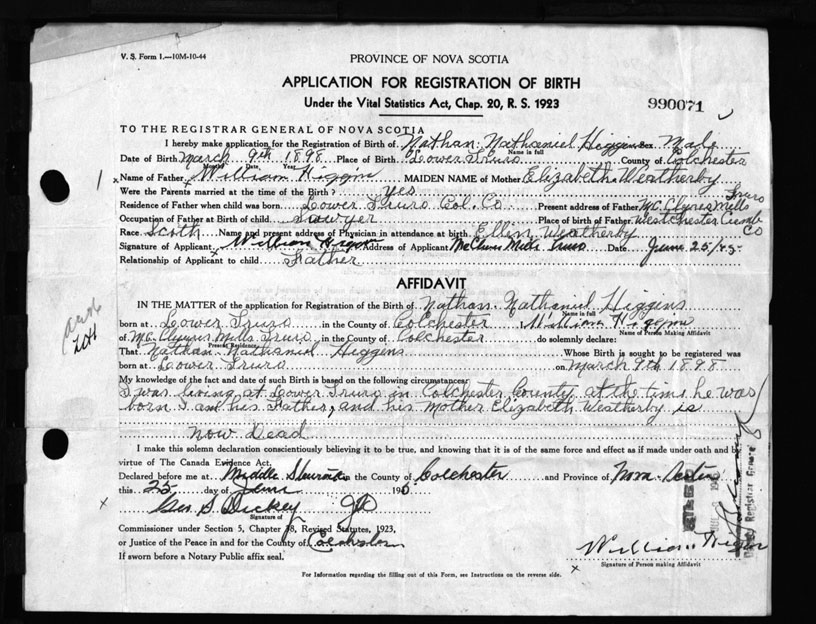 V. S. Form 1.—10M-10-44
PROVINCE OF NOVA SCOTIA
APPLICATION FOR REGISTRATION OF BIRTH
Under the Vital Statistics Act, Chap. 20, R. S. 1923
990071
TO THE REGISTRAR GENERAL OF NOVA SCOTIA
I hereby make application for the Registration of Birth of Nathan Nathaniel Higgins Sex Male
Name in full
Date of Birth March 9th 1898 Place of Birth Lower Truro County of Colchester
Month Date Year
Name of Father William Higgins MAIDEN NAME of Mother Elizabeth Weatherby
Were the Parents married at the time of the Birth? Yes
Truro
Residence of Father when child was born Lower Truro Col. Co Present address of Father Mc Clures Mills
Occupation of Father at Birth of child Sawyer Place of birth of Father Westchester Cumb Co
Race Scoth Name and present address of Physician in attendance at birth Ellin Weatherby
Signature of Applicant William Higgins Address of Applicant McClures Mills Truro Date June 25/45
Relationship of Applicant to child Father
AFFIDAVIT
IN THE MATTER of the application for Registration of the Birth of Nathan Nathaniel Higgins
Name in full
born at Lower Truro in the County of Colchester William Higgins
Name of Person Making Affidavit
of Mc Clures Mills Truro in the County of Colchester do solemnly declare:
Present Residence
That Nathan Nathaniel Higgins Whose Birth is sought to be registered was
born at Lower Truro on March 9th 1898
My knowledge of the fact and date of such Birth is based on the following circumstances:
I was living at Lower Truro in Colchester County at the time he was
born I am his Father, and his Mother Elizabeth Weatherby is
now Dead
I make this solemn declaration conscientiously believing it to be true, and knowing that it is of the same force and effect as if made under oath and by
virtue of The Canada Evidence Act.
Declared before me at Middle in the County of Colchester and Province of Nova Scotia
this 25 day of June 19
Geo. S. Dickey J P
Signature of
Commissioner under Section 5, Chapter 38, Revised Statutes, 1923,
or Justice of the Peace in and for the County of Colchester
If sworn before a Notary Public affix seal.
William Higgins
Signature of Person making Affidavit
For Information regarding the filling out of this Form, see Instructions on the reverse side.
Registrar General